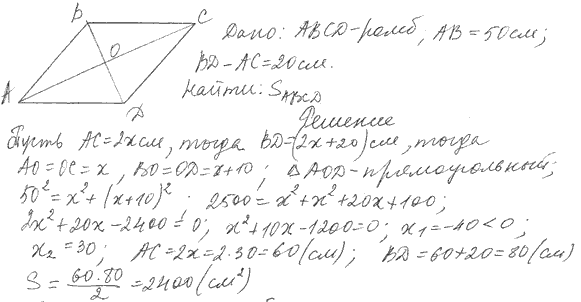 B C
Дано: ABCD-ромб, AB=50см;
O
BD-AC=20см.
A D
Найти: S_ABCD
Решение
Пусть AC=2x см, тогда BD=(2x+20) см, тогда
AO=OC=x, BO=OD=x+10; △AOD-прямоугольный;
50²=x²+(x+10)²; 2500=x²+x²+20x+100;
2x²+20x-2400=0; x²+10x-1200=0; x₁=-40<0;
x₂=30; AC=2x=2·30=60(см); BD=60+20=80(см)
S=60·80/2=2400(см²)